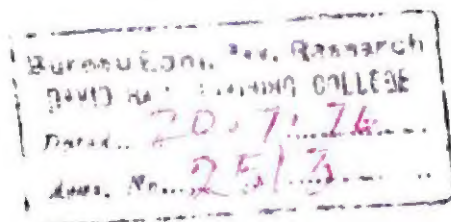 Bureau Ednl. Psy. Research
DAVID HARE TRAINING COLLEGE
Dated.. 20.7.76
Accs. No.... 2513